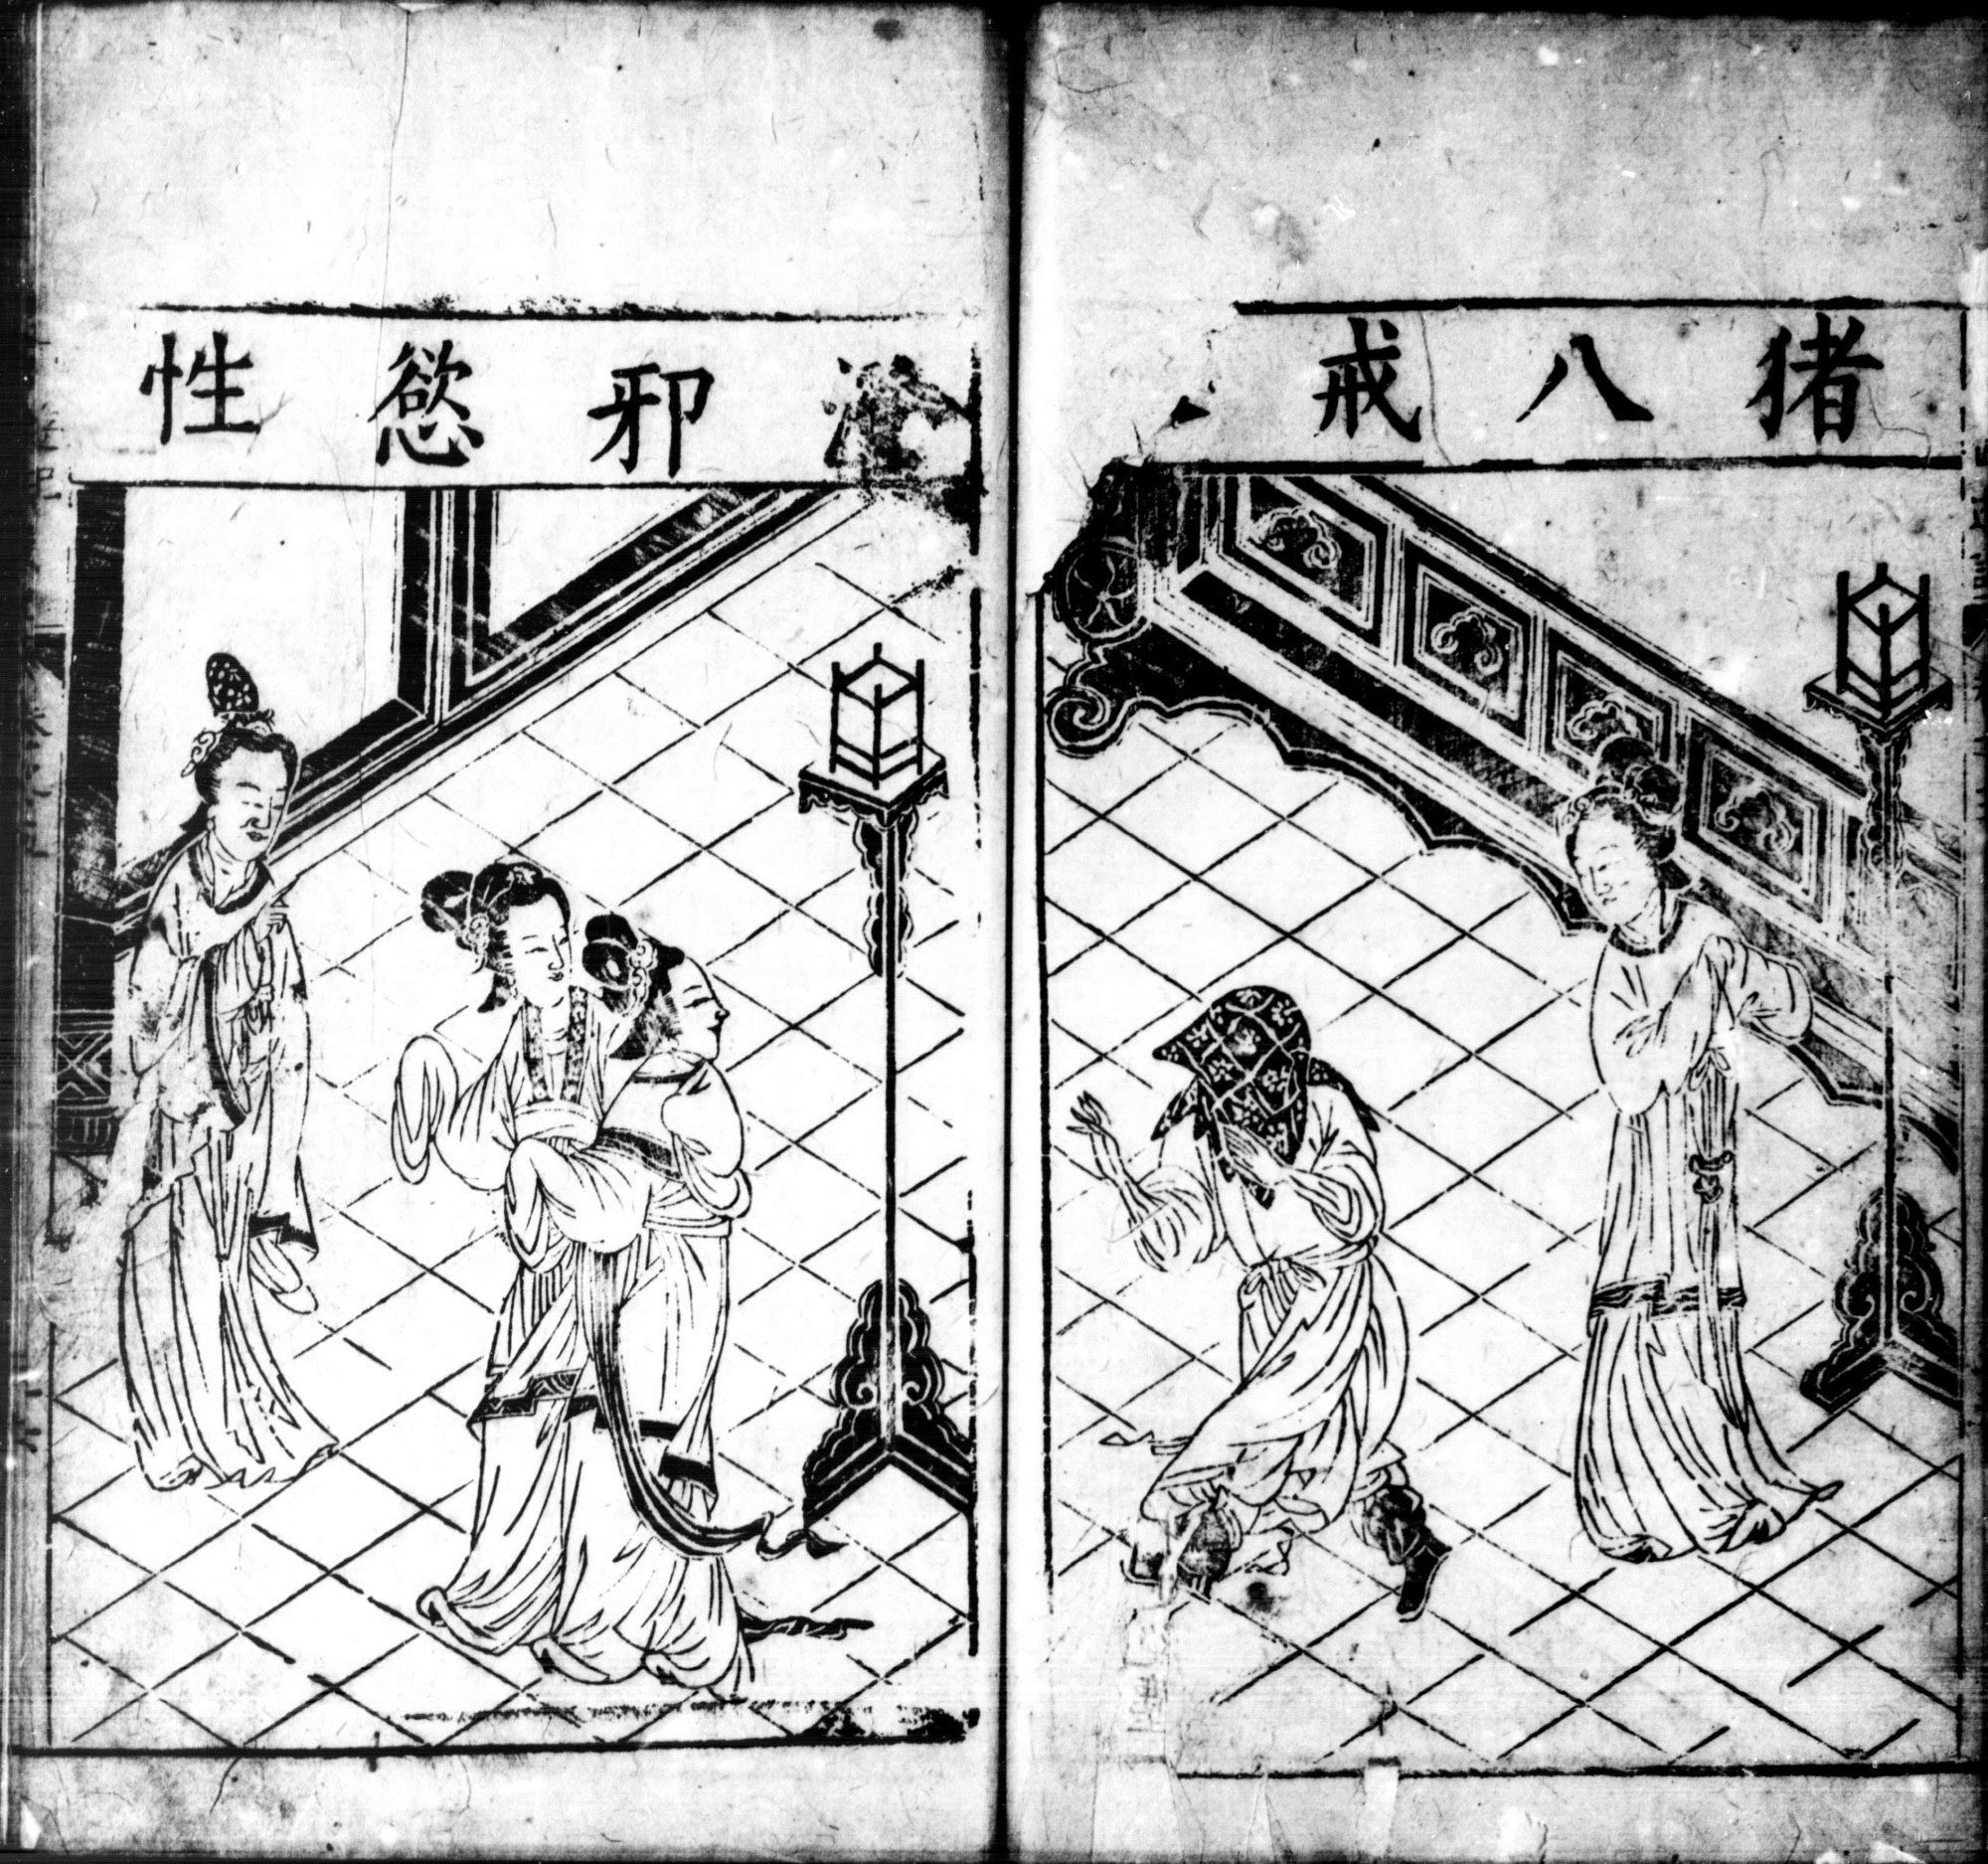 猪八戒
邪慾性